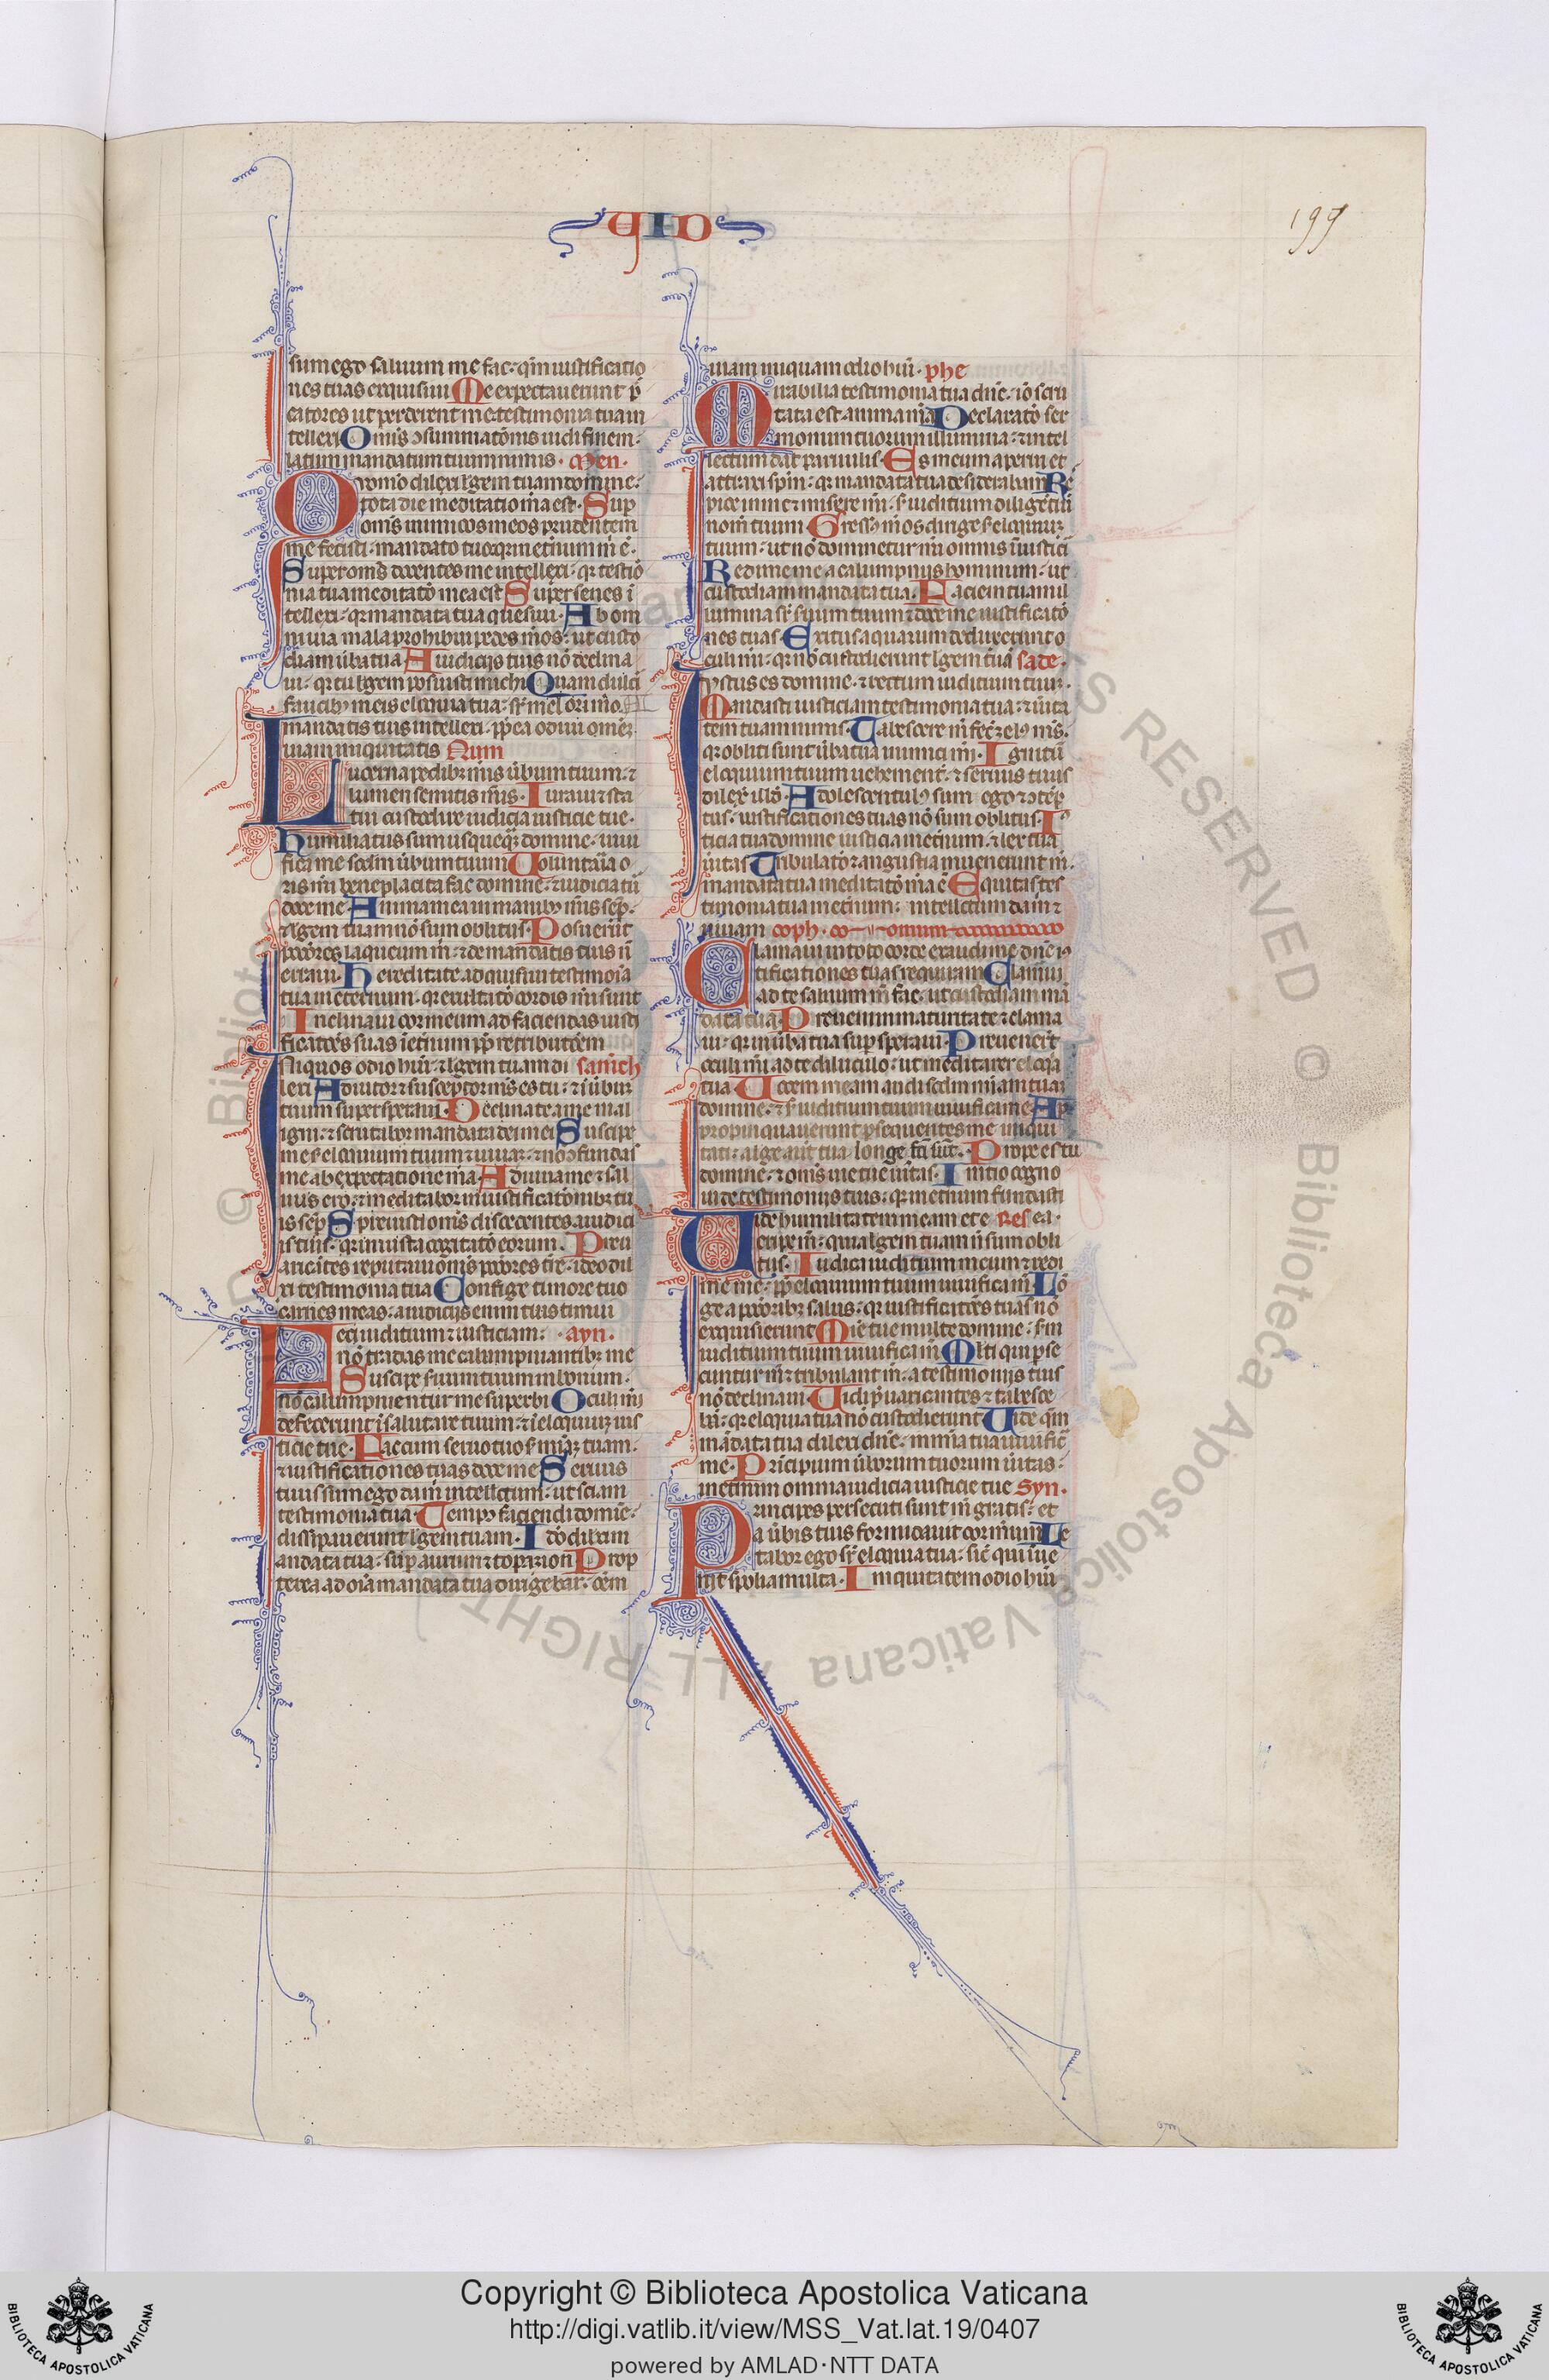 DIV
199
sum ego saluum me fac: qm̅ iustificatio
nes tuas exquisiui Me expectauerunt p̅
catores ut perderent me: testimonia tua in
tellexi Omīs ɔsummatōnis uidi finem:
latum mandatum tuum nimis. Men.
Quomō dilexi lgem tuam domine:
tota die meditatio m̄a est. Sup
omīs inimicos meos prudentem
me fecisti. mandato tuo: qr ineternum m̄ ē.
Super oms̄ docentes me intellexi: qr testiō
nia tua meditatō mea est Super senes ī
tellexi: qr mandata tua quesiui. Ab om
ni uia mala prohibui pedes m̄os: ut custo
diam ūba tua A iudicijs tuis nō declina
ui: qr tu lgem posuisti michi Quam dulcī
faucibꝰ meis eloquia tua: sꝑ mel ori m̄o. A
mandatis tuis intellexi: ꝓpt̄ea odiui omēꝫ
uiam iniquitatis Num
Lucerna pedibꝫ m̄is ūbum tuum: ⁊
lumen semitis m̄is. Iuraui ⁊ sta
tui custodire iudicia iusticie tue.
Humiliatus sum usquequaqꝫ domine: uiui
fica me scdm̄ ūbum tuum Uoluntaīa o
ris m̄i beneplacita fac domine: ⁊ iudicia tū
doce me Anima mea in manibꝰ m̄is semꝑ:
⁊ lgem tuam nō sum oblitus. Posuerūt
pccōres laqueum m̄: ⁊ de mandatis tuis ñ
erraui. Hereditate adquisiui testimoīa
tua ineternum: qr exultatō cordis m̄i sunt
Inclinaui cor meum ad faciendas iusti
ficatōes suas ieternum ꝓp̄ retributōem
Iniquos odio hūi: ⁊ lgem tuam di samech
lexi Adiutor ⁊ susceptor m̄s es tu: ⁊ ī ūbum
tuum supersperaui. Declinate a me mal
igni: ⁊ scrutabor mandata dei mei Suscipe
me s̄ eloquium tuum ⁊ uiuaꝫ: ⁊ nō ɔfundas
me ab expectatione m̄a. Adiuua me ⁊ sal
uus ero: ⁊ meditabor in iustificatōnibꝫ tu
is semꝑ Spreuisti omīs discedentes a iudici
is tuis: qr iniusta cogitatō eorum. Preu
aricātes reputaui omīs pccōres tr̄e: ideo dil
exi testimonia tua Confige timore tuo
carnes meas: a iudicijs enim tuis timui
Feci iuditium ⁊ iusticiam: ayn.
nō tradas me calumpniantibꝫ me
Suscipe s̄uum tuum in bonum:
nō calumpnientur me superbi Oculi m̄i
defecerunt ī salutare tuum: ⁊ ī eloquiuꝫ ius
ticie tue. Fac cum seruo tuo s̄ m̄iaꝫ tuam:
⁊ iustificationes tuas doce me Seruus
tuus sum ego da m̄ intellectum: ut sciam
testimonia tua. Tempꝰ faciendi domine:
dissipauerunt lgem tuam. Ido dilexi m
andata tua: suꝑ aurum ⁊ topazion Prop
terea ad oīa mandata tua dirigebar: oēm
uiam iniquam odio hūi. phe
Mirabilia testimonia tua dn̄e: iō scru
tata est anima m̄a Declaratō ser
monum tuorum illuminat: ⁊ intel
lectum dat paruulis. Os meum aperui et
attraxi spm̄: qr mandata tua desiderabam Re
spice in me ⁊ miserere m̄i: s̄ iuditium diligētiū
nom̄ tuum Gressꝰ m̄os dirige s̄ eloquiuꝫ
tuum: ut nō dominetur m̄i omnis īiusticīa
Redime me a calumpnijs hominum: ut
custodiam mandata tua. Faciem tuam il
lumina sꝑ s̄uum tuum: ⁊ doce me iustificatō
nes tuas. Exitus aquarum deduxerunt o
culi m̄i: qr nō custodierunt lgem tuā sade.
Iustus es domine: ⁊ rectum iuditium tuuꝫ.
Mandasti iusticiam testimonia tua: ⁊ ūita
tem tuam nimis. Tabescere m̄ fecꝫ zelꝰ m̄s:
qr obliti sunt ūba tua inimici m̄i. Ignitū
eloquium tuum uehement̄: ⁊ seruus tuus
dilex̄ illđ. Adolescentulꝰ sum ego ⁊ ɔtēp
tus: iustificationes tuas nō sum oblitus. Iꝰ
ticia tua domine iusticia ineternum: ⁊ lex tua
ūitas Tribulatō ⁊ angustia inuenerunt m̄:
mandata tua meditatō m̄a ē Equitas tes
timonia tua ineternum: intellectum da m̄ ⁊
uiuam coph.
Clamaui in toto corde exaudi me dn̄e: iꝰ
tificationes tuas requiram Clamaui
ad te saluum m̄ fac: ut custodiam mā
data tua. Preueni in maturitate ⁊ clama
ui: qr in ūba tua suꝑsperaui. Preuenerūt
oculi m̄i ad te diluculo: ut meditarer eloq̄a
tua Uocem meam audi scdm̄ m̄iam tuam
domine: ⁊ s̄ iuditium tuum uiuifica me Ap
propinquauerunt ꝑsequentes me iniqui
tati: a lge aūt tua longe fc̄i sūt. Prope es tu
domine: ⁊ omīs uie tue ūitas. Initio cogno
ui de testimonijs tuis: qr ineternum fundasti
Uide humilitatem meam et e Res ea.
eripe m̄: quia lgem tuam ñ sum obli
tus. Iudica iuditium meum ⁊ redi
me me: ꝓp̄ eloquium tuum uiuifica m̄ Lō
ge a pccōribꝫ salus: qr iustificatōes tuas nō
exquisierunt Mīe tue multe domine: s̄m
iuditium tuum uiuifica m̄ Mlti qui ꝑse
cuntur m̄ ⁊ tribulant m̄: a testimonijs tuis
nō declinaui Uidi p̄uaricantes ⁊ tabesce
bā: qr eloquia tua nō custodierunt Uide qm̄
mādata tua dilexi dn̄e: in m̄ia tua uiuificā
me. Principium ūborum tuorum ūitas:
ineternum omnia iudicia iusticie tue Syn.
Principes persecuti sunt m̄ gratis: et
a ūbis tuis formidauit cor m̄um Le
tabor ego sꝑ eloquia tua: sic̄ qui īue
nit spolia multa. Iniquitatem odio hūi
Copyright © Biblioteca Apostolica Vaticana
http://digi.vatlib.it/view/MSS_Vat.lat.19/0407
powered by AMLAD·NTT DATA
BIBLIOTECA APOSTOLICA VATICANA
BIBLIOTECA APOSTOLICA VATICANA
© Biblioteca Apostolica Vaticana ALL RIGHTS RESERVED © Biblioteca Apostolica Vaticana ALL RIGHTS RESERVED